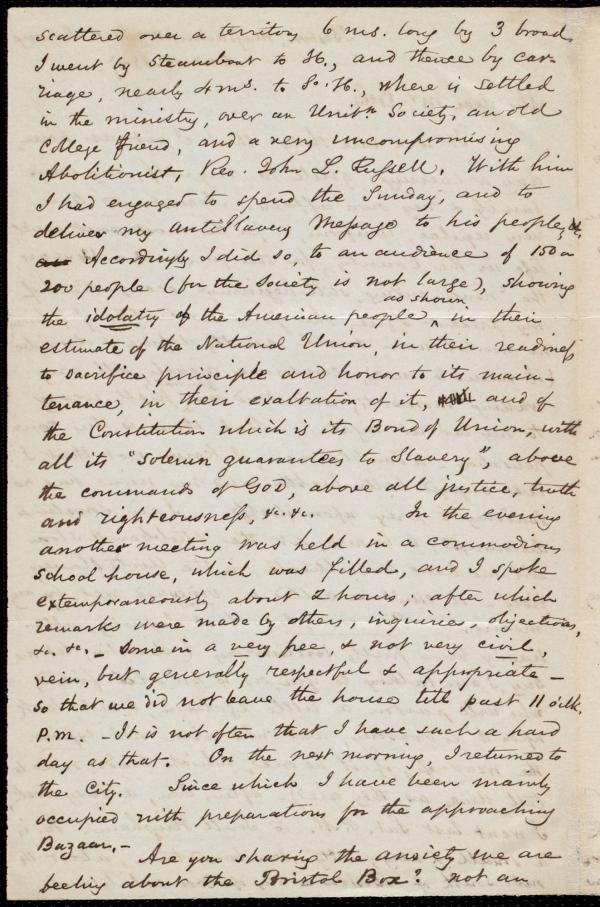 scattered over a territory 6 ms. long by 3 broad.
I went by Steamboat to H., and thence by car-
riage, nearly 4 ms. to So. H., where is settled
in the ministry, over an Unitn. Society, an old
College friend, and a very uncompromising
Abolitionist, Rev. John L. Russell. With him
I had engaged to spend the Sunday, and to
deliver my antiSlavery Message to his people,
Accordingly I did so, to an audience of 150 or
200 people (for the Society is not large), showing
the idolatry of the American people, as shown, in their
estimate of the National Union, in their readiness
to sacrifice principle and honor to its main-
tenance, in their exaltation of it, and of
the Constitution which is its Bond of Union, with
all its "solemn guarantees to Slavery", above
the commands of God, above all justice, truth
and righteousness, &c. &c. In the evening
another meeting was held in a commodious
School house, which was filled, and I spoke
extemporaneously about 2 hours; after which
remarks were made by others, inquiries, objections,
&c. &c. - Some in a very free, & not very civil,
vein, but generally respectful & appropriate -
so that we did not leave the house till past 11 o'clk.
P.M. - It is not often that I have such a hard
day as that. On the next morning, I returned to
the City. Since which I have been mainly
occupied with preparations for the approaching
Bazaar. -
Are you sharing the anxiety we are
feeling about the Bristol Box? not an